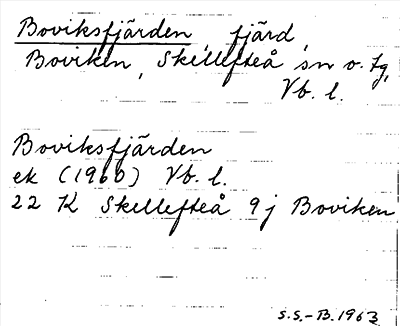 Boviksfjärden, fjärd,
Boviken, Skellefteå sn o. tg,
Vb. l.
Boviksfjärden
ek (1960) Vb. l.
22 K Skellefteå 9 j Boviken
S.S.-B. 1963